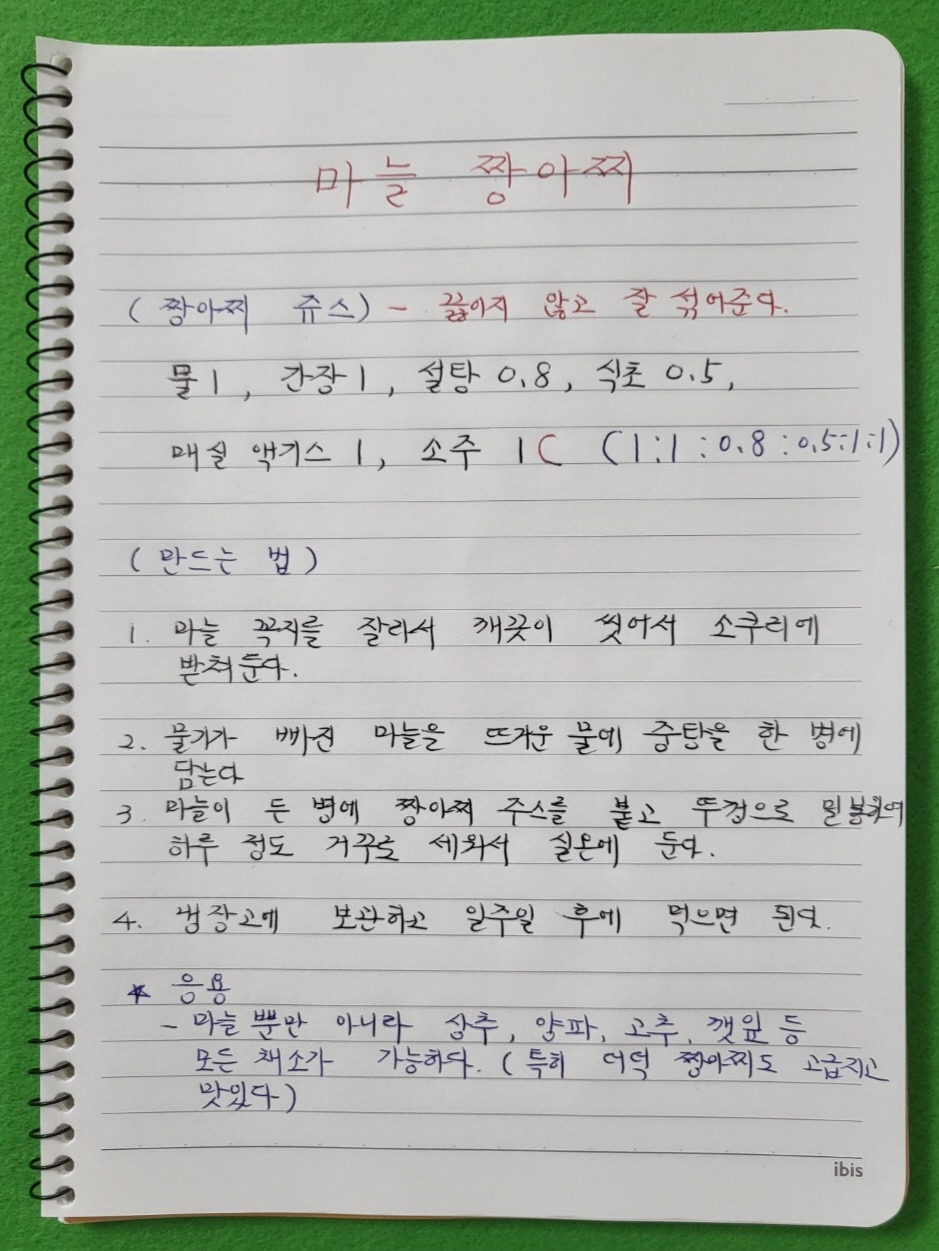 마늘 짱아찌
(짱아찌 쥬스) - 끓이지 않고 잘 섞어준다.
물 1, 간장 1, 설탕 0.8, 식초 0.5,
매실 액기스 1, 소주 1C (1:1:0.8:0.5:1:1)
(만드는 법)
1. 마늘 꼭지를 잘라서 깨끗이 씻어서 소쿠리에
받쳐둔다.
2. 물기가 빠진 마늘을 뜨거운 물에 중탕을 한 병에
담는다
3. 마늘이 든 병에 짱아찌 주스를 붙고 뚜껑으로 밀봉하여
하루 정도 거꾸로 세워서 실온에 둔다.
4. 냉장고에 보관하고 일주일 후에 먹으면 된다.
* 응용
- 마늘 뿐만 아니라 상추, 양파, 고추, 깻잎 등
모든 채소가 가능하다. (특히 더덕 짱아찌도 고급지고
맛있다)
ibis